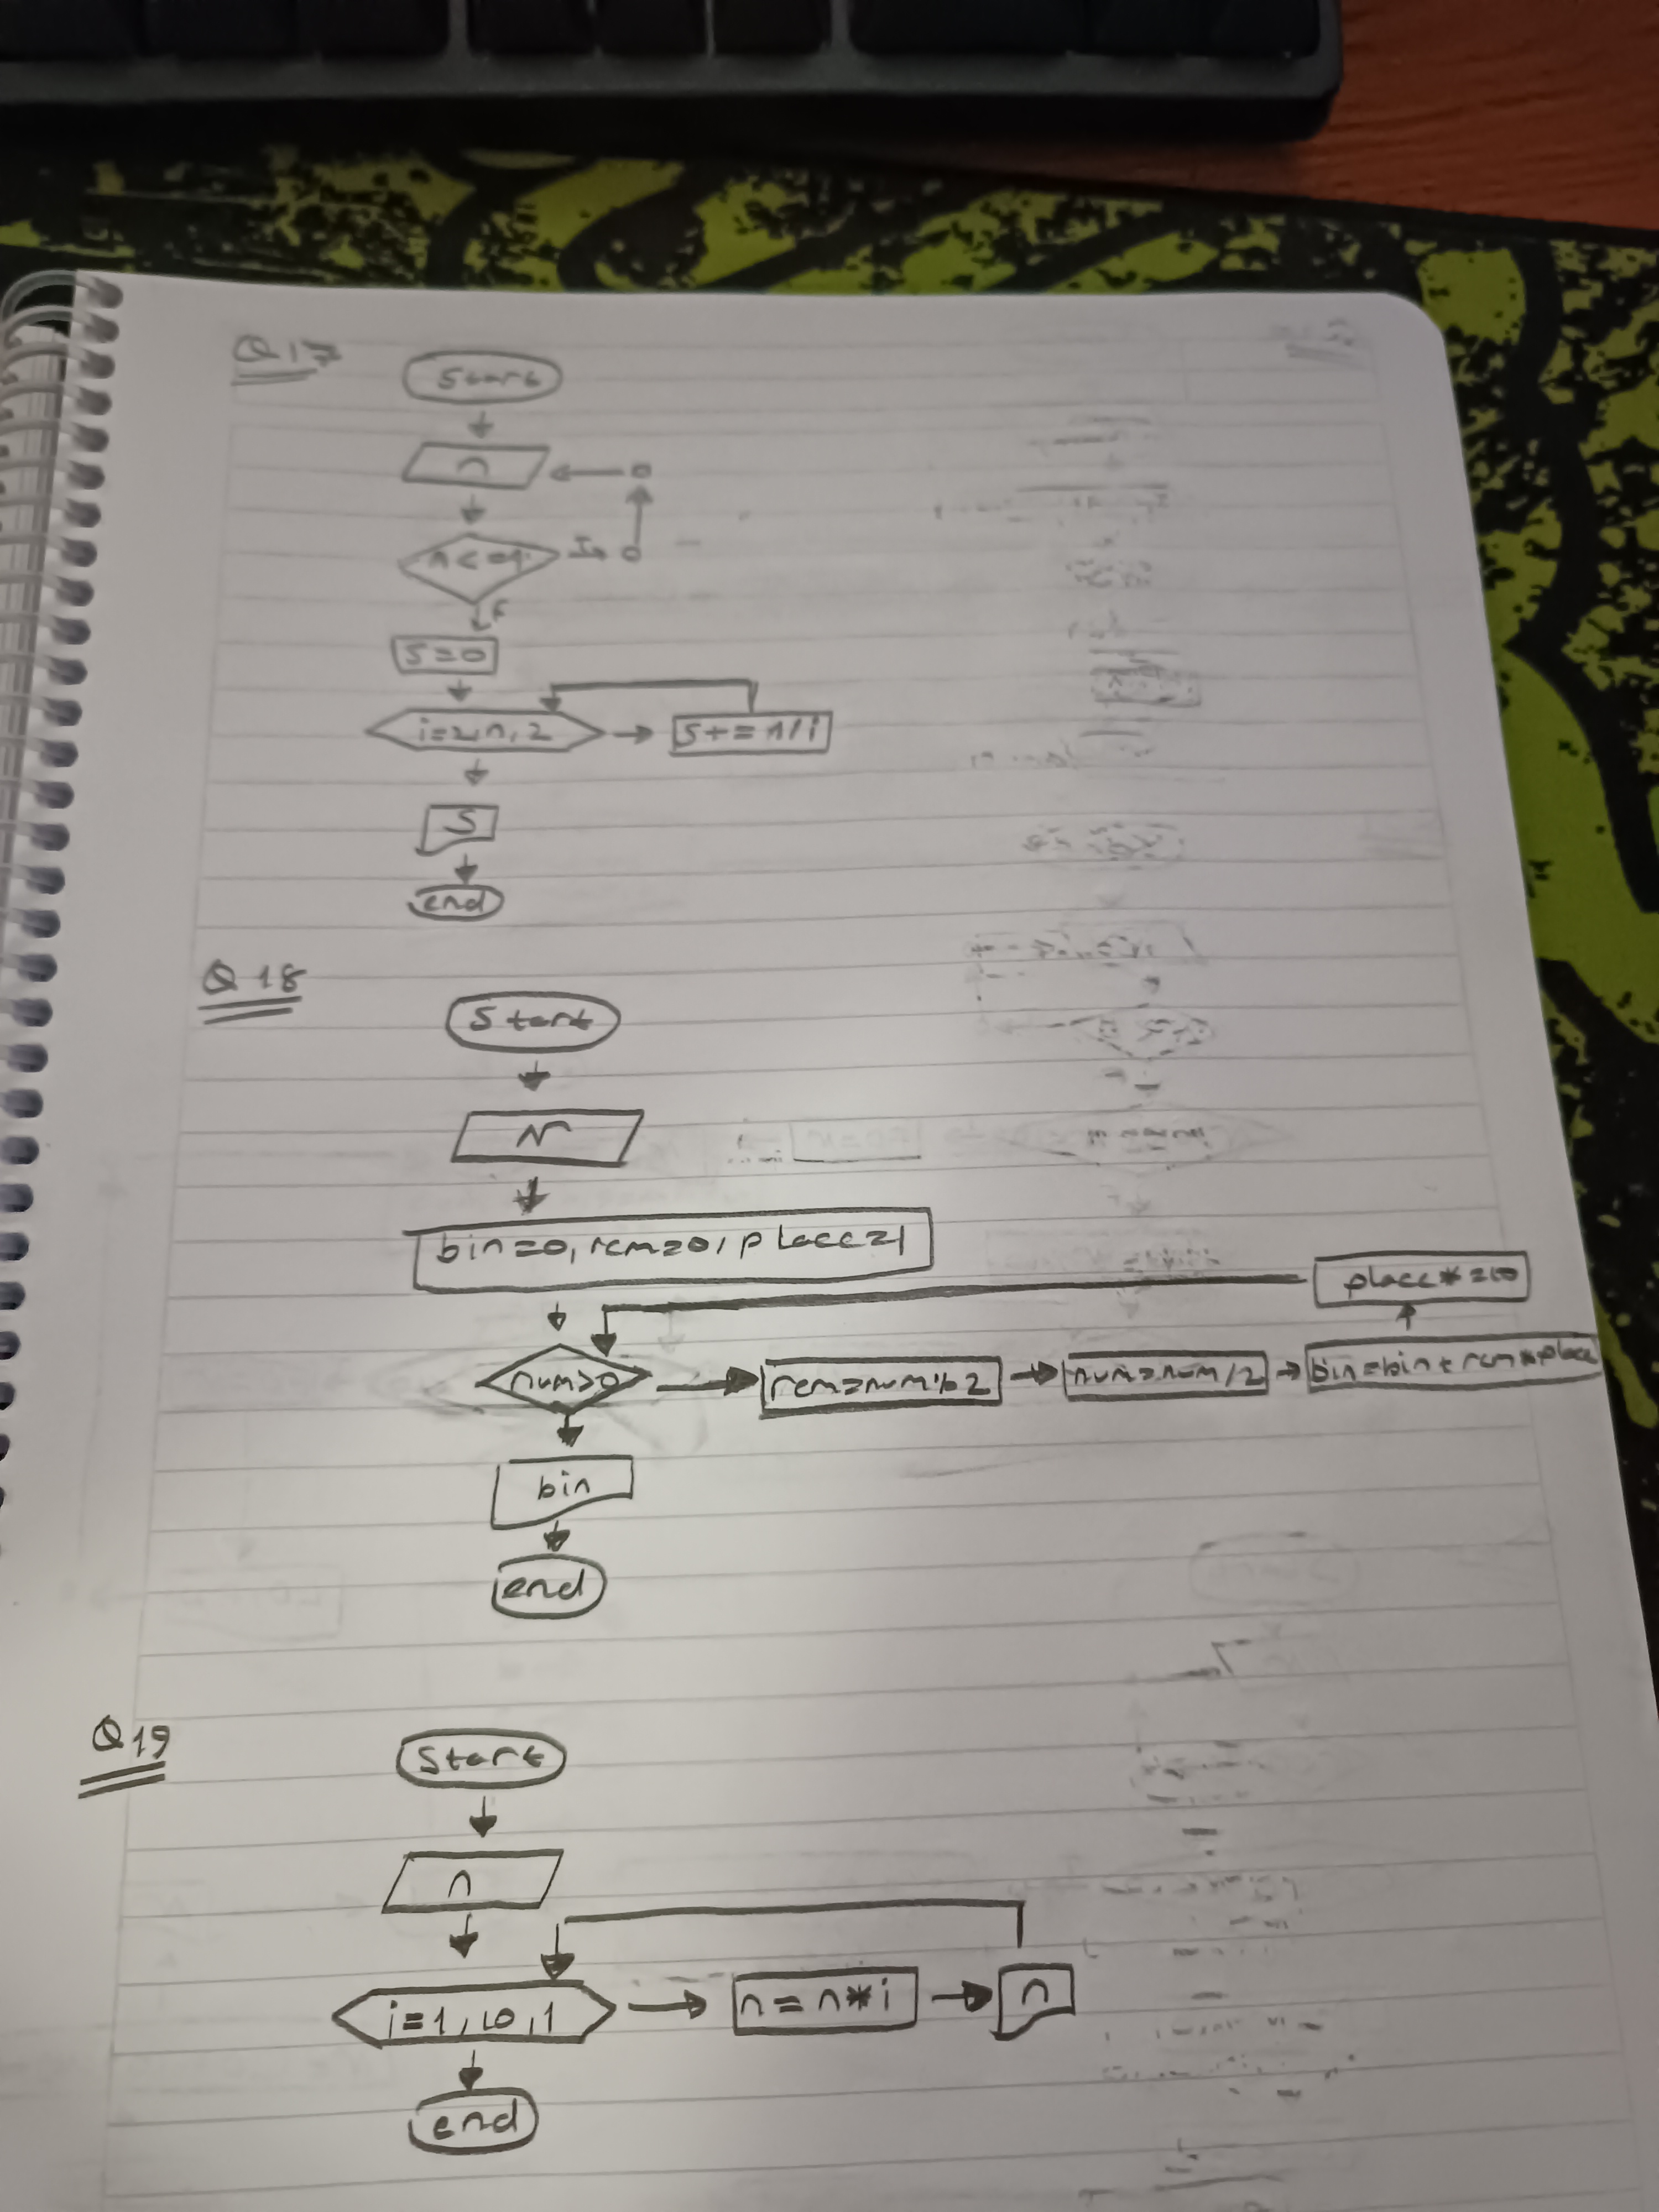 Q17
start
n
S=0
i=2,n,2
S+=1/i
S
end
Q 18
Start
N
bin=0, rem=0, place=1
place*=10
num>0
rem=num%2
num=num/2
bin=bin+rem*place
bin
end
Q19
Start
n
i=1,10,1
n=n*i
n
end